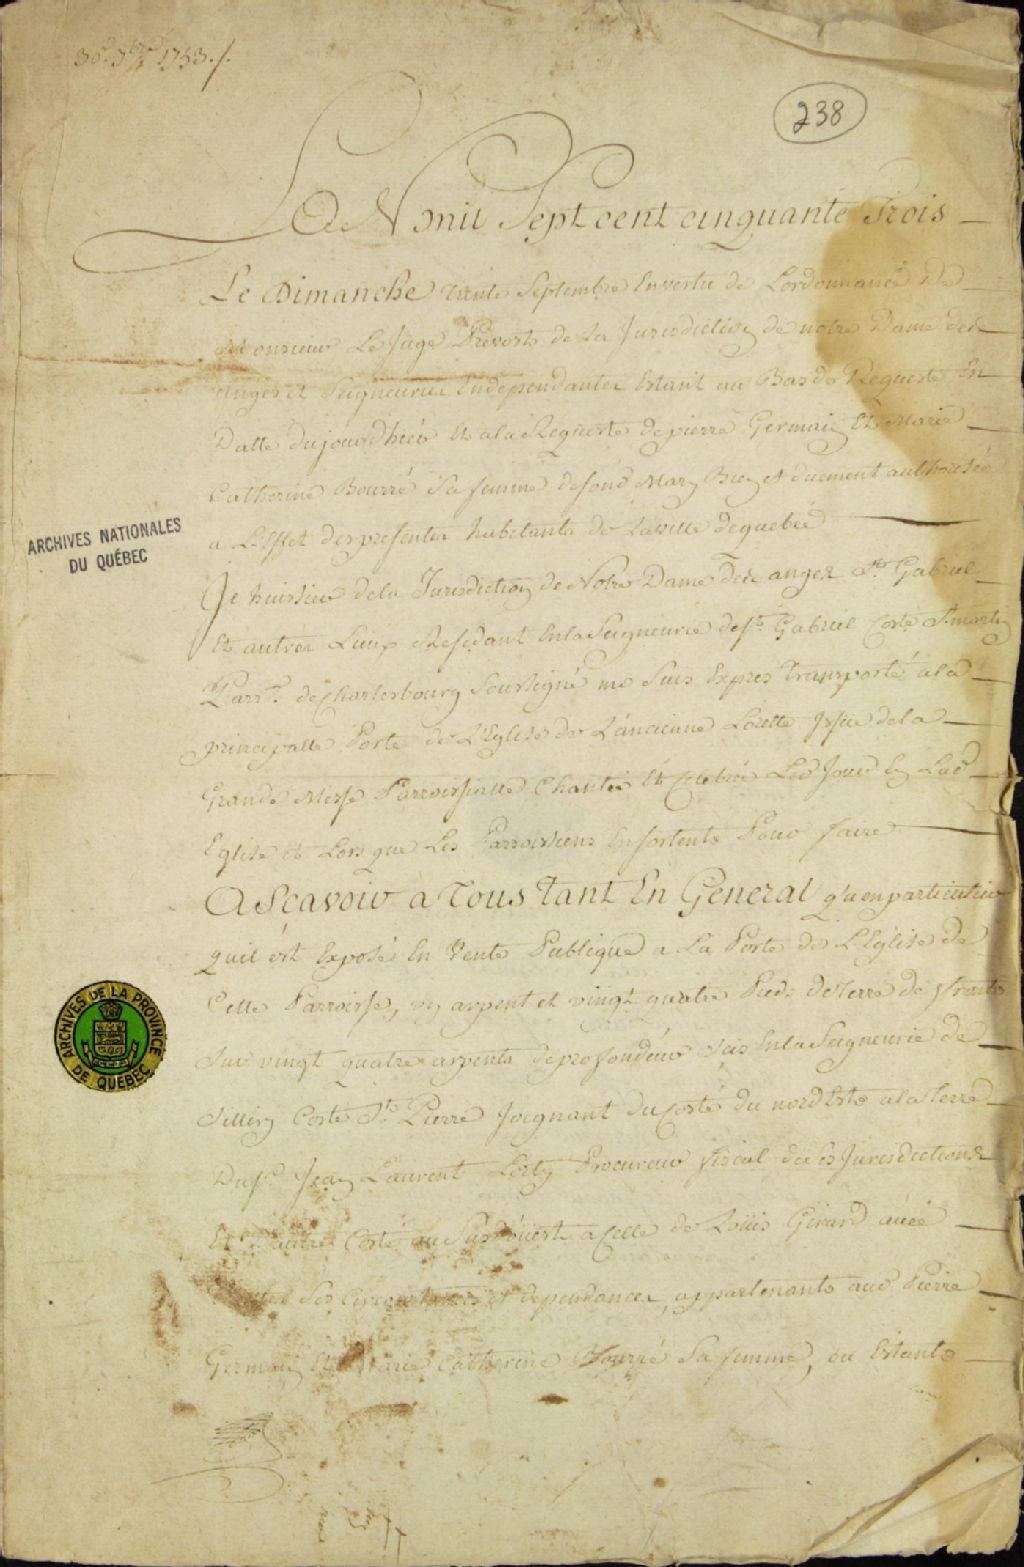 30e 7bre 1753./.
238
L'AN mil Sept cent cinquante Trois
Le Dimanche trente Septembre En vertu de Lordonnance De
Monsieur Le Juge Prevosts de La Jurisdiction de notre Dame des
anges et Seigneuries Independantes Estant au Bas de Requeste En
Datte du jourdhuy Et a la Requeste de pierre Germain Et Marie
Catherine Bourré Sa femme de sond Mary Bien et duement authorisée
a L'Effet des presentes habitants de La ville de quebec
ARCHIVES NATIONALES
DU QUÉBEC
Je huissier de la Jurisdiction de Notre Dame Des anges St. Gabriel
Et autres Lieux Residant En la Seigneurie de St. Gabriel Coste St. martin
Parr.e de Charlesbourg Soussigné me Suis Expres transporté a la
principalle Porte de L'Eglise de L'ancienne Lorette Issue de la
Grande Messe Parroissialle Chantée Et Celebrée Led Jour En Lad
Eglise et Lors que Les Parroissiens En sortents Pour faire
A Scavoir a Tous tant En General qu'en particulier
quil est Exposé En Vente Publique a La Porte de L'Eglise de
Cette Parroisse, un arpent et vingt quatre Pieds de Terre de fronts
Sur vingt quatre arpents de profondeur Scis En la Seigneurie de
Sillery Coste St. Pierre Joignant du Costé du nord Est a la Terre
Du Sr. Jean Laurent Procureur fiscal de Jurisdictions
Et autre Costé au Sud ouest a Celle de Loüis Girard avec
Ses Circonstances et dependances, appartenants aud Pierre
Germain Et Marie Catherine Bourré Sa femme, ou Estants
ARCHIVES DE LA PROVINCE
DE QUÉBEC